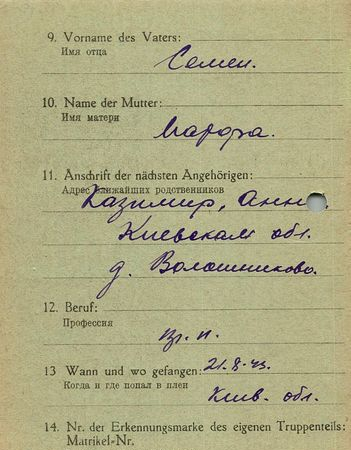 9. Vorname des Vaters:
Имя отца
Семен.
10. Name der Mutter:
Имя матери
Марфа.
11. Anschrift der nächsten Angehörigen:
Адрес ближайших родственников
Казимир, Анн
Киевская обл.
д. Волошиново.
12. Beruf:
Профессия
13 Wann und wo gefangen: 21.8.43.
Когда и где попал в плен
Киев. обл.
14. Nr. der Erkennungsmarke des eigenen Truppenteils:
Matrikel-Nr.